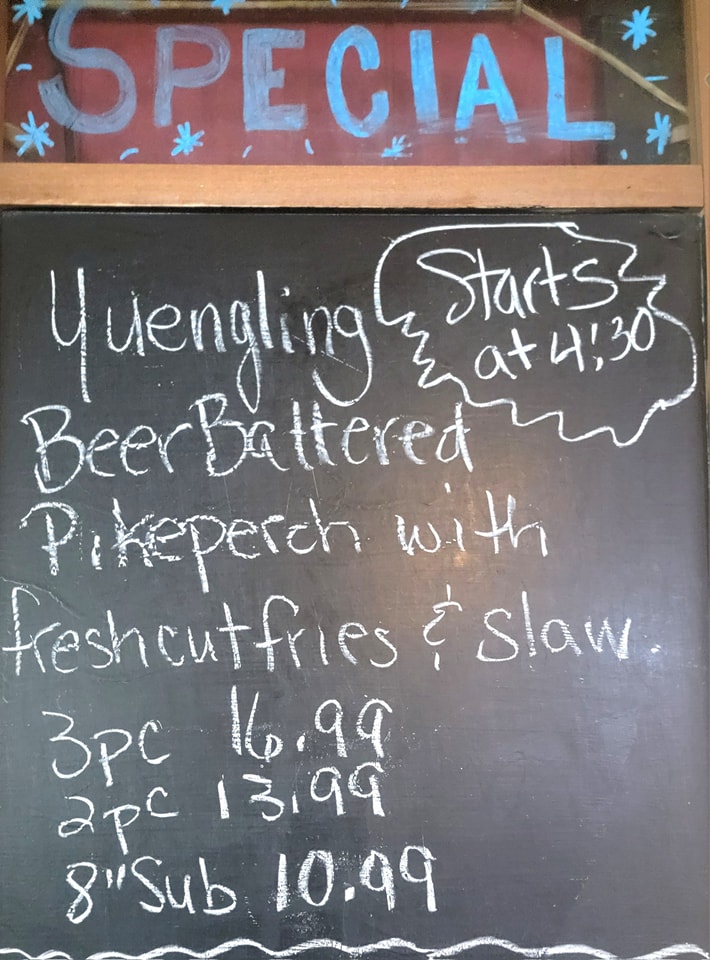 SPECIAL
Yuengling
Starts
at 4:30
Beer Battered
Pikeperch with
freshcut fries & slaw.
3pc 16.99
2pc 13.99
8" Sub 10.99